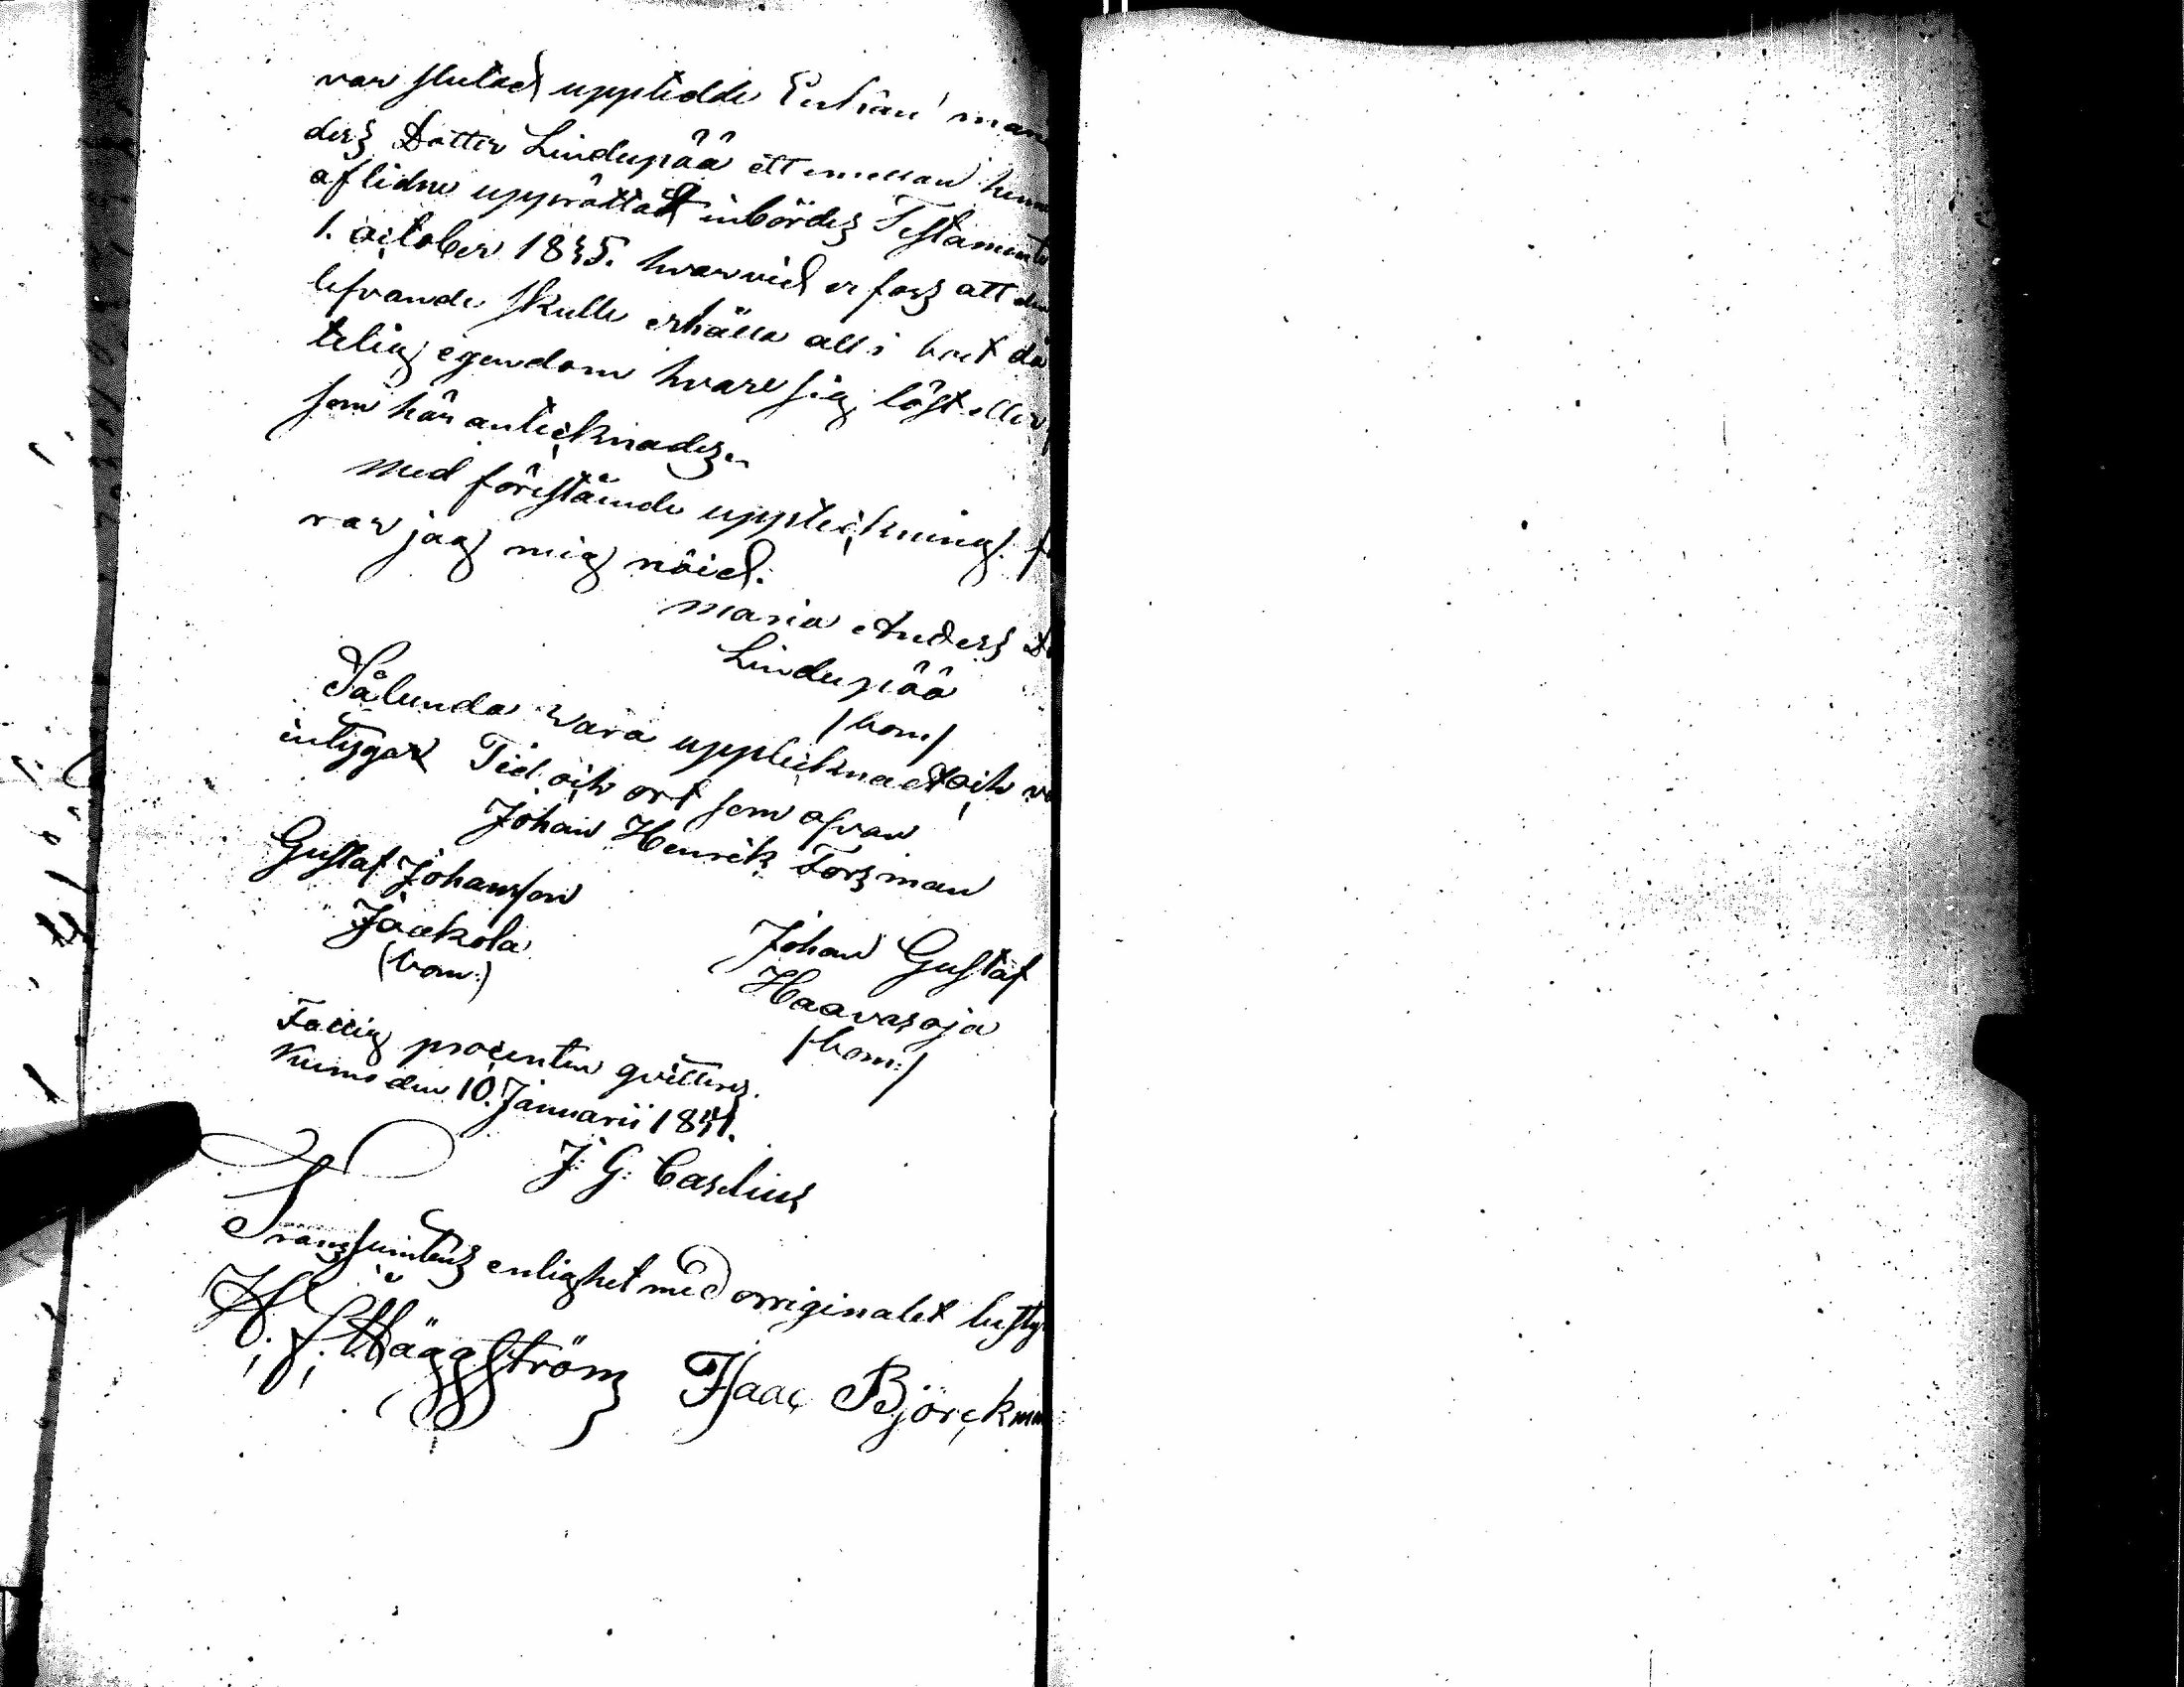 var slutad uppteedde Enkan mar
ders Dotter Lindupää ett emellan henn
aflidne upprättadt inbördes Testamente
1. october 1835. hvarvid erfors att den
lefvande skulle erhålla all i boet då
telig egendom hvare sig löst eller
som här antecknades.
Med förestående uppteckning f
rar jag mig nöjd.
Maria Anders D
Lindupää
/bom./
Sålunda vara upptecknadt och v
intygar Tid och ort som ofvan
Johan Henrik Forsman
Gustaf Johansson
Jaakola
(bom:)
Johan Gustaf
Haavasoja
/bom:/
Fattig procenten qvitteras.
Kumo den 10. Januarii 1841.
J: G: Caselius
Transsumtens enlighet med orriginalet besty
H: F: Häggström Isaac Björckm